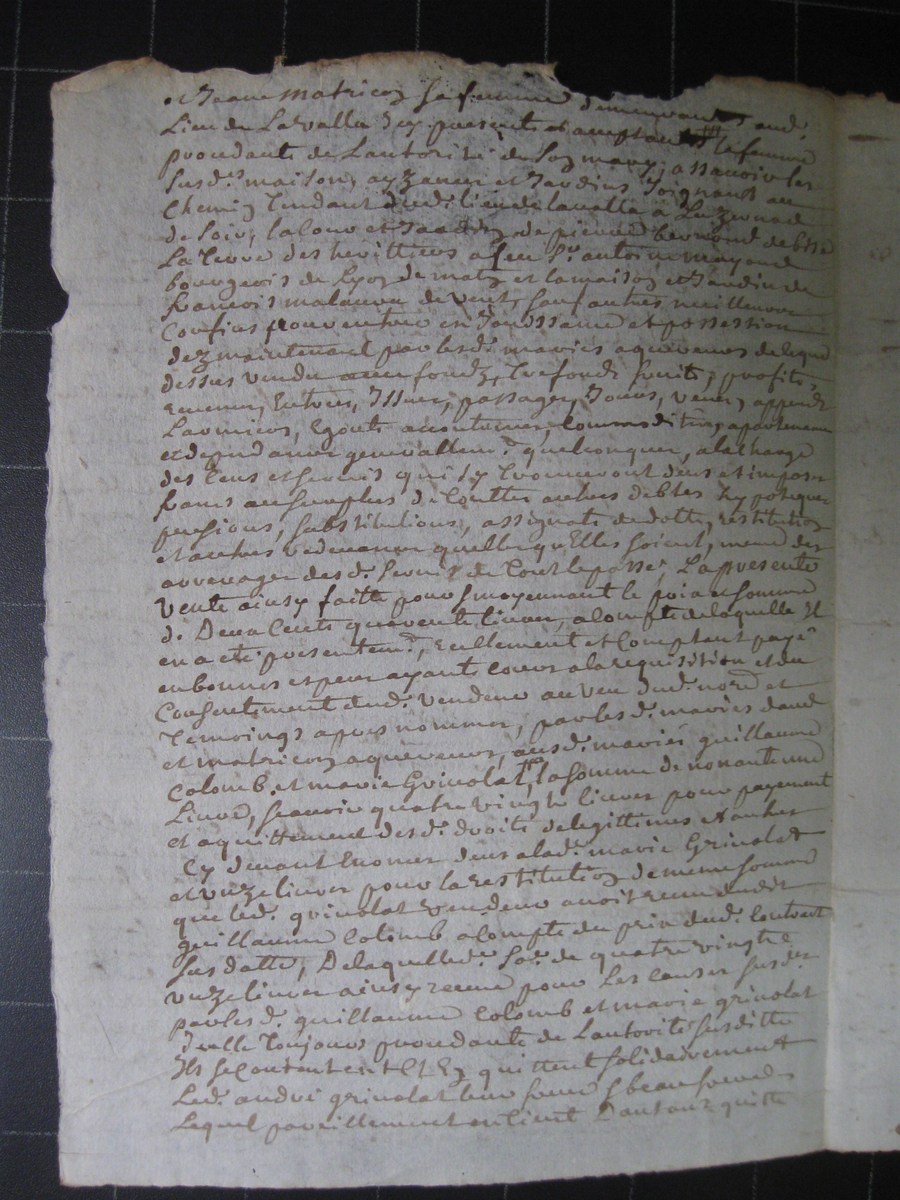 et Jeane matricoz sa femme demeurants aud.
Lieu de Lavalla Icy presents et acceptants la femme
procedante de Lautorité de soz mary, assavoir les
susd.s maison, ayzances et Jardins Joignant au
chemiz tendant dud. lieu de lavalla a
de soir, la cour et Jardiz de pierre bermond de bize
La terre des heritiers a feu S.r antoine mayoud
bourgeois de Lyoz de matz et la maisoz et Jardiz de
francois malaure de vent, sauf autres meilleures
Confins pour entrer en Jouissance et possession
dez maintenant par lesd. mariés aquereurs de leque
dessus vendu avec fondz, trefondz fruits, profits,
revenus, Entrées, Issues, passages, Jours, veues, append.
Larmiers, Egouts accoutumes, commoditez, apartenan
et dependances generallem.t quelconques, a la charge
des Cens et servis qui sy trouveront deus et imposes
francs au surplus de touttes autres debtes hypoteques
pensions, substitutions, assignats de dotte, restitution
et autres redevances quelles quElles soient, meme des
arrerages desd. servis de tout le passé, La presente
vente ainsy faitte pour & moyennant le prix et somme
d. Deux Cents quarente livres, a compte de laquelle Il
en a eté presentem.t, reellement et Comptant payé
en bonnes especes ayants cours a la requisition et du
Consentement dud. vendeur au veu dud. no.re et
temoings apres nommes, par lesd. mariés
et matricoz aquereurs, ausd. mariés guillaume
Colomb, et marie Grivolat, la somme de nonante une
Livre, scavoir quatre vingts livres pour payement
et aquittement desd. droits de legittimes et autres
Cy devant Enoncés deus a lad. marie Grivolat
et unze livres pour la restitution de meme somme
que led. grivolat vendeur avoit receu dudit
guillaume Colomb a Compte du prix dud. Contract
sus datté, De laquelle d. so.e de quatre vingts
unze livres ainsy receue pour Les causes susd.es
par lesd. guillaume Colomb et marie grivolat
Icelle toujours procedante de Lautorité susditte
Ils se contentent Et Ez quittent solidairement
Led. andré grivolat leur frere & beau frere
Lequel pareillement en tient dautant quitte